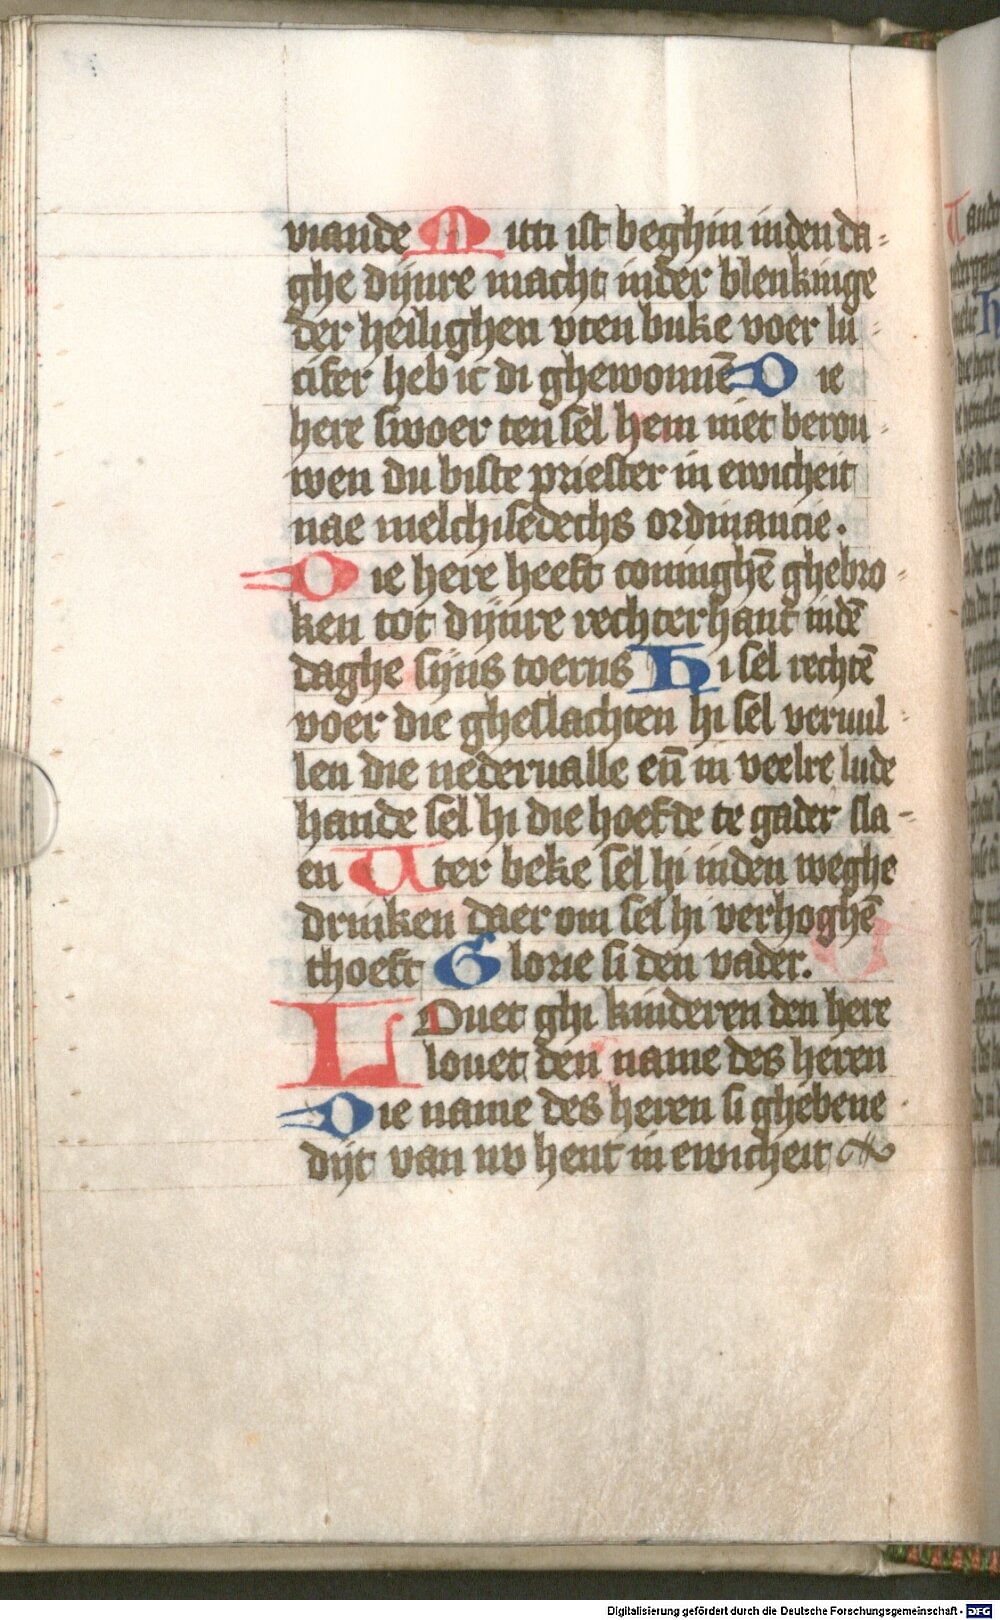 viande Mitti ist beghin inden da-
ghe dijnre macht inder blenkinge
der heilighen vten buke voer lu-
cifer heb ic di ghewonnē Die
here swoer ten sel hem niet berou-
wen du biste priester in ewicheit
nae melchisedechs ordinancie.
Die here heeft coninghē ghebro-
ken tot dijnre rechterhant indē
daghe sijns toerns Hi sel rechtē
voer die gheslachten hi sel veruul-
len die nederualle eñ in veelre lude
hande sel hi die hoefde te gader sla-
en Uter beke sel hi inden weghe
drinken daer om sel hi verhoghē
thoeft Glorie si den vader.
LOuet ghi kinderen den here
louet den name des heren
Die name des heren si ghebene-
dijt van nv hent in ewicheit
Digitalisierung gefördert durch die Deutsche Forschungsgemeinschaft - DFG